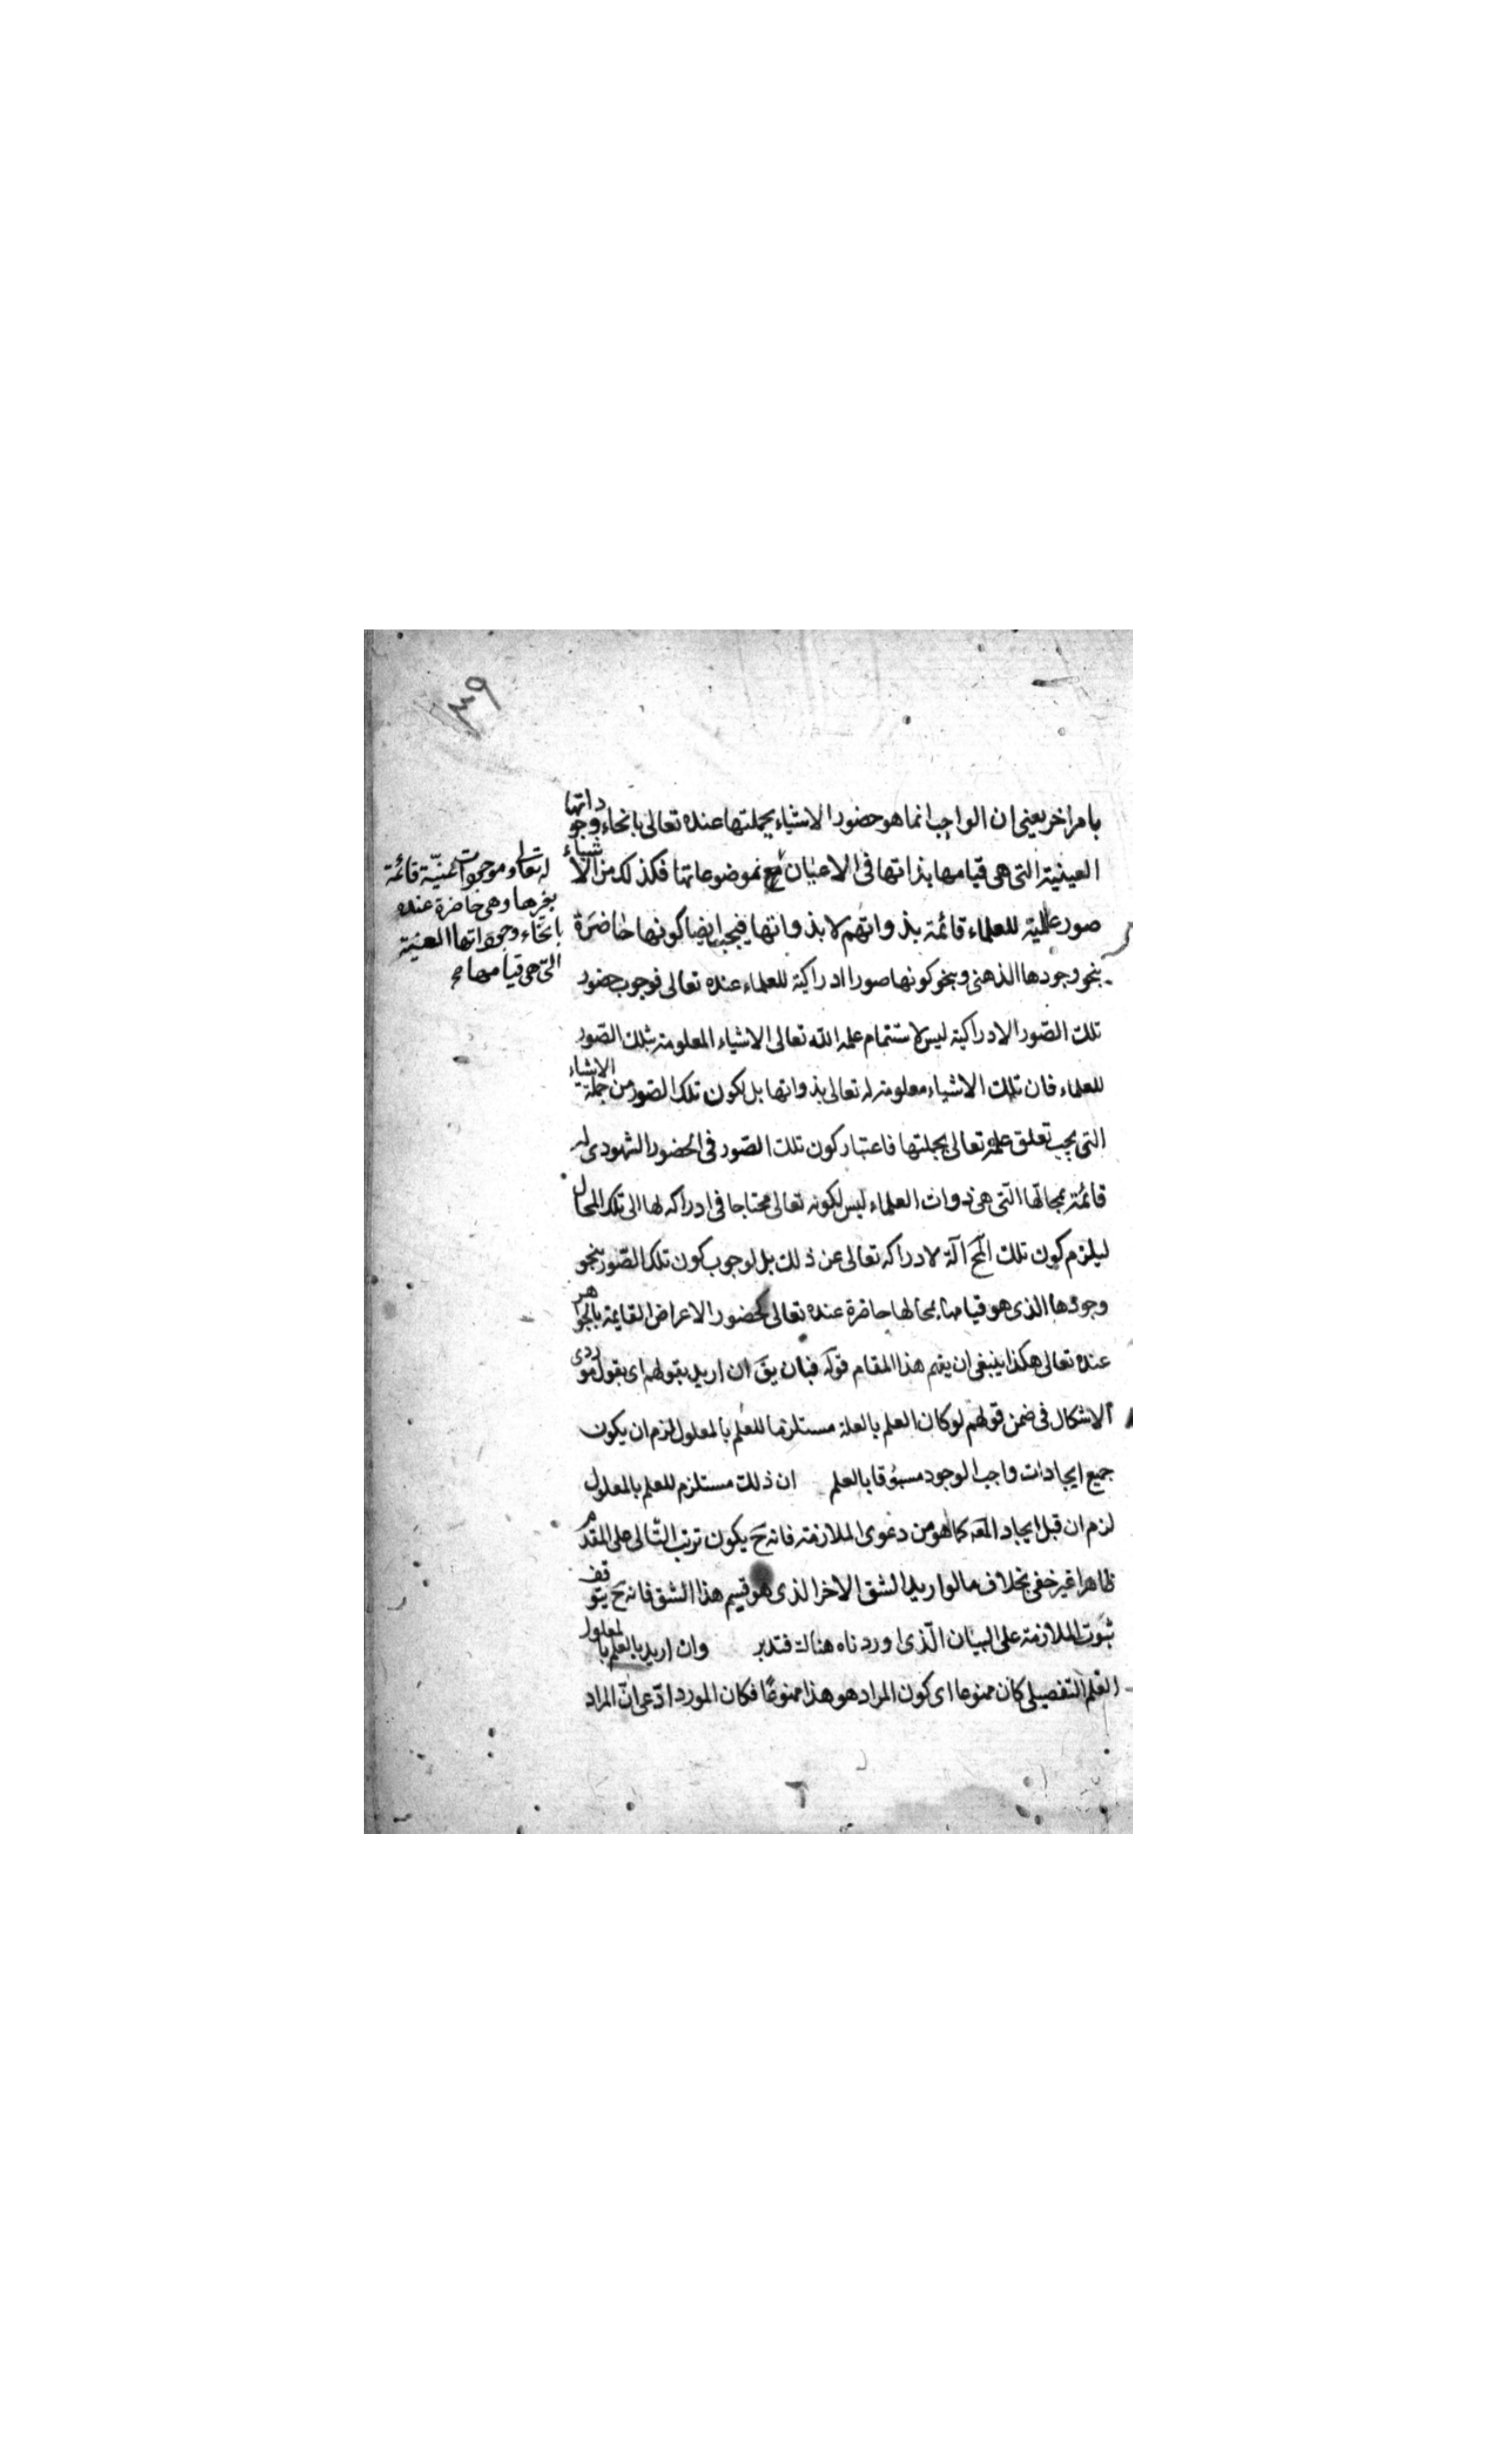 ٣٩
بامر اخر يعنى ان الواجب انما هو حضور الاشياء بجملتها عنده تعالى بانحاء وجوداتها
العينية التى هى قيامها بذاتها فى الاعيان مع بموضوعاتها فكذلك من الاشياء
صور علمية للعلماء قائمة بذواتهم لا بذواتها فيجب ايضا كونها حاضرة
بنحو وجودها الذهنى وبنحو كونها صورا ادراكية للعلماء عنده تعالى فوجوب حضور
تلك الصّور الادراكية ليس لاستتمام علم الله تعالى الاشياء المعلومة بتلك الصّور
للعلماء فان تلك الاشياء معلومة له تعالى بذواتها بل لكون تلك الصّور من جملة الاشياء
التى يجب تعلق علمه تعالى بجملتها فاعتبار كون تلك الصّور فى الحضور الشهودى له
قائمة بمحالّها التى هى ذوات العلماء ليس لكونه تعالى محتاجا فى ادراكه لها الى تلك المحال
ليلزم كون تلك المحَ آلة لادراكه تعالى عن ذلك بل لوجوب كون تلك الصّور بنحو
وجودها الذى هو قيامها بمحالها حاضرة عنده تعالى كحضور الاعراض القايمة بالجواهر
عنده تعالى هكذا ينبغى ان يفهم هذا المقام قوله فبان يقَ ان اريد بقولهم اى بقول موردى
الاشكال فى ضمن قولهم لو كان العلم بالعلة مستلزما للعلم بالمعلول لزم ان يكون
جميع ايجادات واجب الوجود مسبوقا بالعلم ان ذلك مستلزم للعلم بالمعلول
لزم ان قبل ايجاده المعَه كما هو من دعوى الملازمة فانه حَ يكون ترتب التّالى على المقدم
ظاهرا غير خفى بخلاف ما لو اريد الشق الاخر الذى هو قسيم هذا الشق فانه حَ يتوقف
ثبوت الملازمة على البيان الّذى اوردناه هنالك فتدبر وان اريد بالعلم بالمعلول
العلم التفصيلى كان ممنوعا اى كون المراد هو هذا ممنوعًا فكان المورد ادّعى انّ المراد
له تعالى وموجودات عينيّة قائمة
بغيرها وهى حاضرة عنده
بانحاء وجوداتها العينيّة
التى هى قيامها